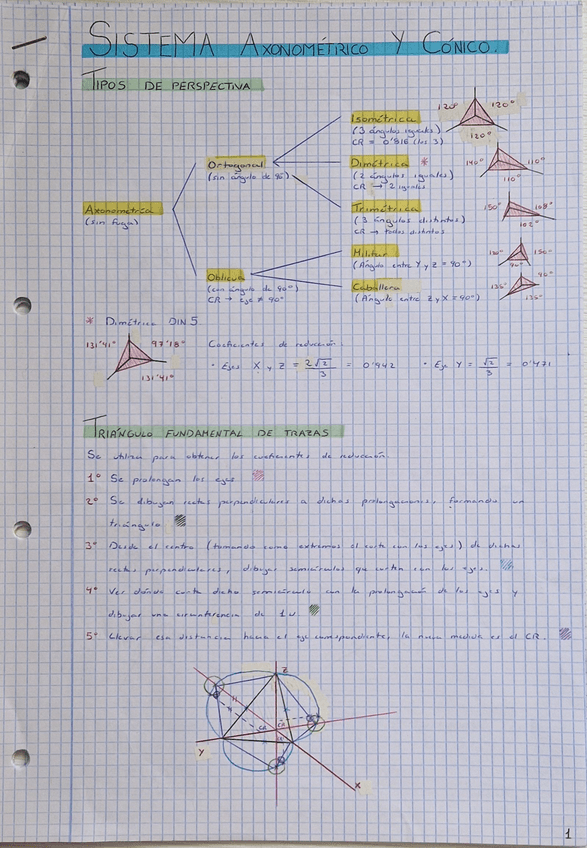 SISTEMA AXONOMÉTRICO Y CÓNICO.
TIPOS DE PERSPECTIVA
Axonometría
(sin fuga)
Ortogonal
(sin ángulo de 90°)
Oblicua
(con ángulo de 90°)
CR → eje ≠ 90°
Isométrica
(3 ángulos iguales)
CR = 0'816 (los 3)
120° 120°
120°
Dimétrica *
(2 ángulos iguales)
CR → 2 iguales
140° 110°
110°
Trimétrica
(3 ángulos distintos)
CR → todos distintos
150° 108°
102°
Militar
(Ángulo entre Y y Z = 90°)
150°
90°
Caballera
(Ángulo entre Z y X = 90°)
135° 90°
135°
* Dimétrica DIN 5
131'41° 97'18°
131'41°
Coeficientes de reducción:
· Ejes X y Z = 2√2/3 = 0'942 · Eje Y = √2/3 = 0'471
TRIÁNGULO FUNDAMENTAL DE TRAZAS
Se utiliza para obtener los coeficientes de reducción.
1° Se prolongan los ejes
2° Se dibujan rectas perpendiculares a dichas prolongaciones, formando un
triángulo
3° Desde el centro (tomando como extremos el corte con los ejes) de dichas
rectas perpendiculares, dibujas semicírculos que corten con los ejes.
4° Ver dónde corta dicho semicírculo con la prolongación de los ejes y
dibujas una circunferencia de 1u
5° Llevar esa distancia hacia el eje correspondiente, la nueva medida es el CR.
Z
CR CR
Y
X
1